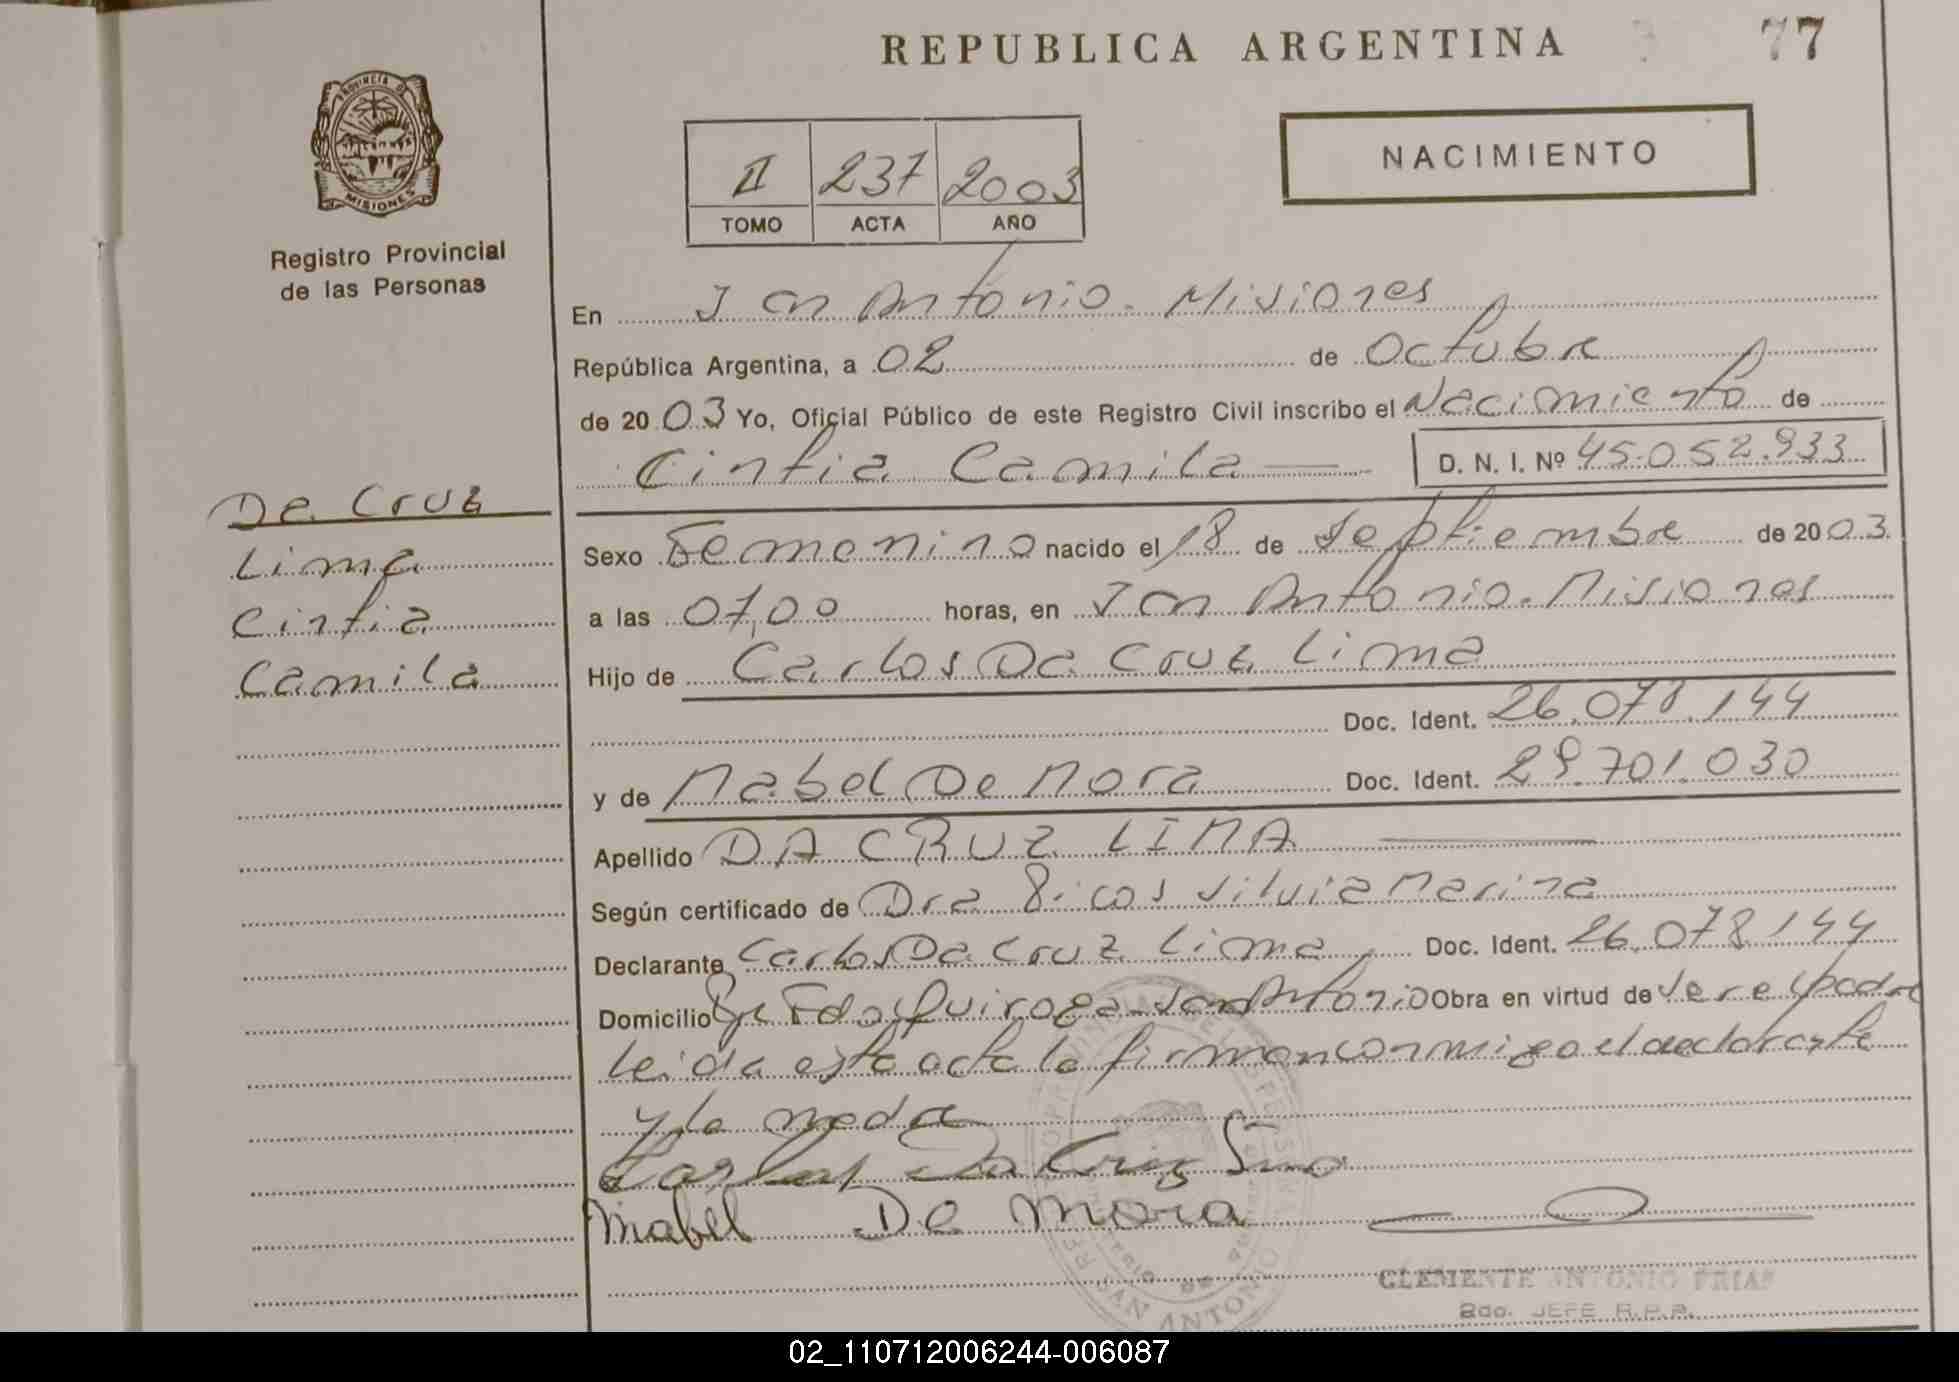 REPUBLICA ARGENTINA
77
PROVINCIA DE
MISIONES
Registro Provincial
de las Personas
II 237 2003
TOMO ACTA AÑO
NACIMIENTO
En San Antonio - Misiones
República Argentina, a 02 de Octubre
de 2003 Yo, Oficial Público de este Registro Civil inscribo el Nacimiento de
Cintia Camila — D. N. I. Nº 45.052.933
Da Cruz
Lima
Cintia
Camila
Sexo Femenino nacido el 18 de Septiembre de 2003
a las 07,00 horas, en San Antonio - Misiones
Hijo de Carlos Da Cruz Lima
Doc. Ident. 26.078.144
y de Mabel De Mora Doc. Ident. 29.701.030
Apellido DA CRUZ LIMA —
Según certificado de Dra Silvia Marina
Declarante Carlos Da Cruz Lima Doc. Ident. 26.078144
Domicilio Quiroga - San Antonio Obra en virtud de ser el padre
Leida esta acta la firman conmigo el declarante
y la madre
Carlos Da Cruz Lima
Mabel De Mora
SAN ANTONIO
CLEMENTE ANTONIO FRIAS
2do. JEFE R.P.P.
02_110712006244-006087